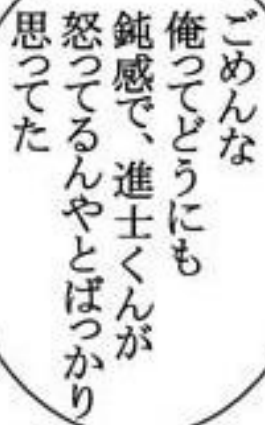 ごめんな
俺ってどうにも
鈍感で、進士くんが
怒ってるんやとばっかり
思ってた